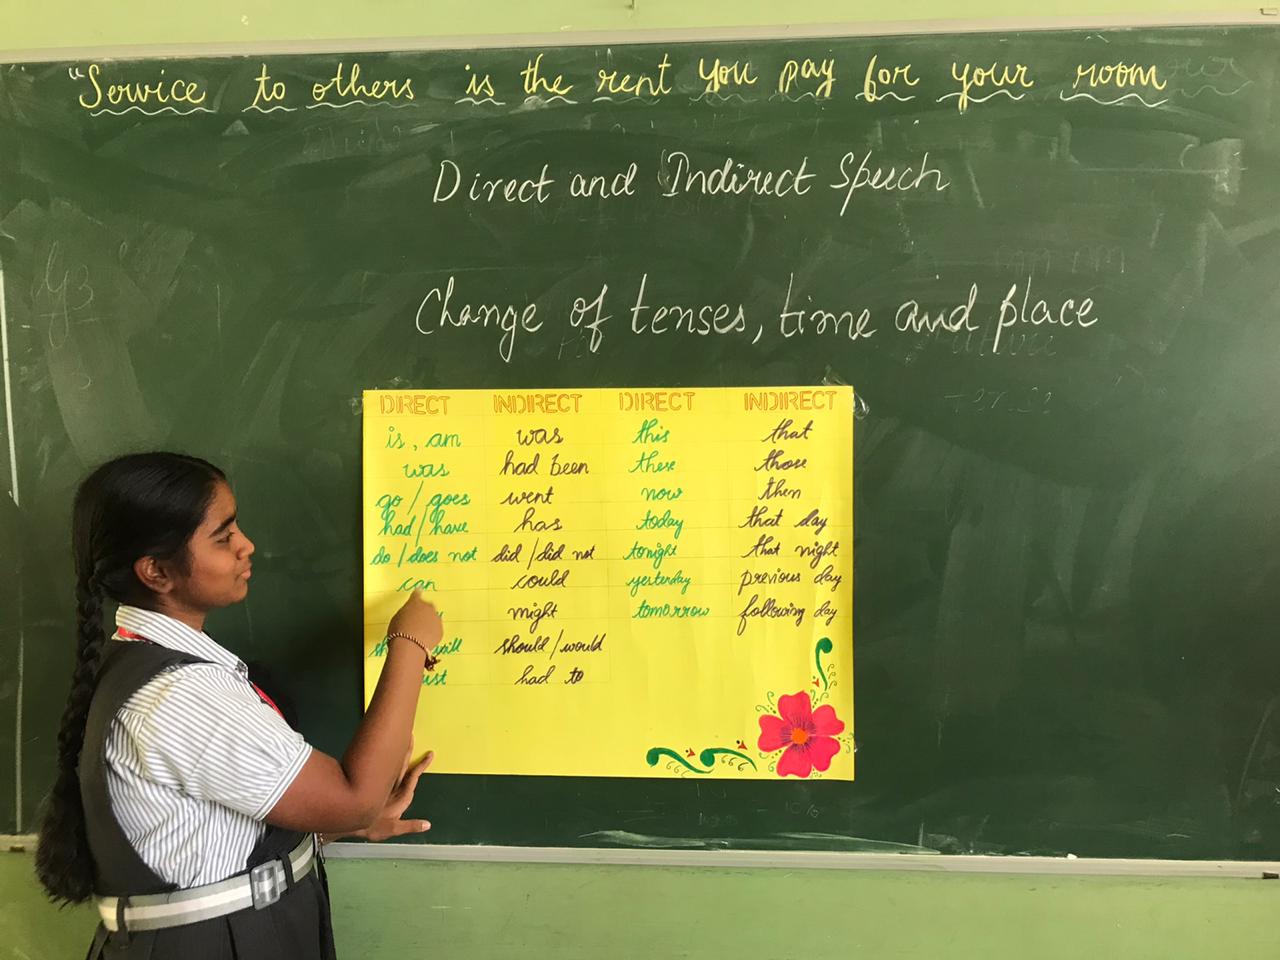 "Service to others is the rent you pay for your room
Direct and Indirect Speech
Change of tenses, time and place
DIRECT INDIRECT DIRECT INDIRECT
is, am was this that
was had been these those
go / goes went now then
had / have has today that day
do / does not did / did not tonight that night
can could yesterday previous day
might tomorrow following day
should / would
had to